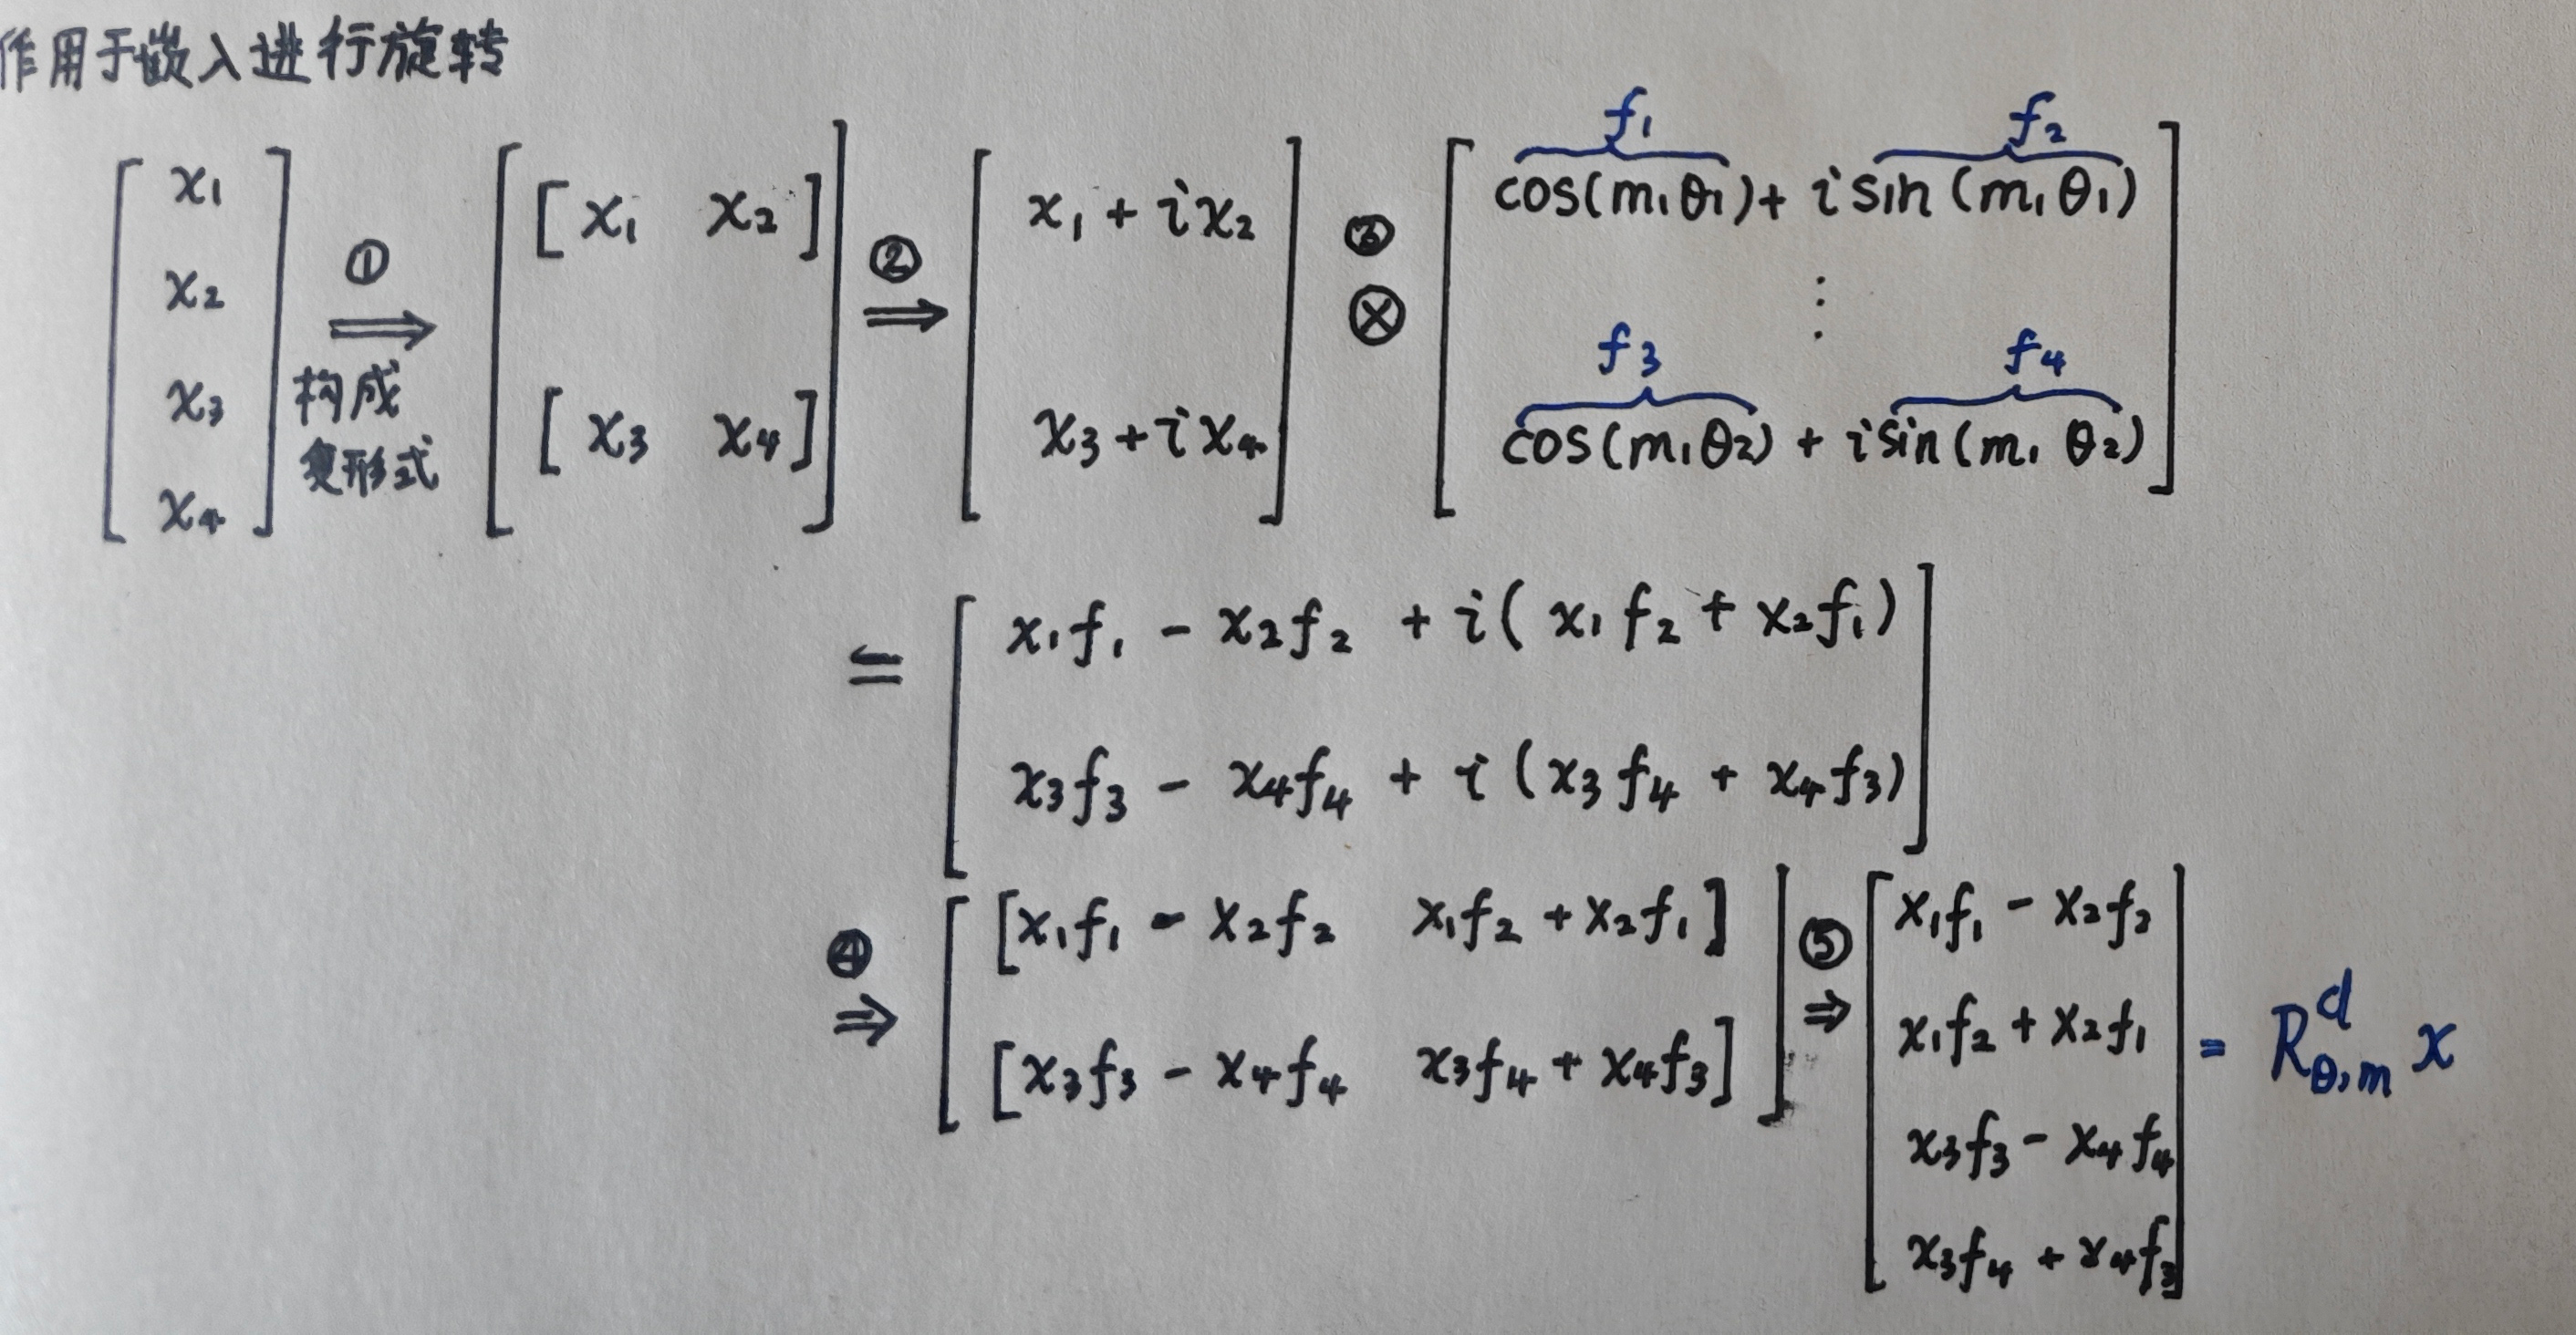 作用于嵌入进行旋转
[x₁ x₂ x₃ x₄] ① ⟹ 构成复形式 [[x₁ x₂] [x₃ x₄]] ② ⟹ [x₁ + ix₂ x₃ + ix₄] ③ ⊗ [cos(m₁θ₁) + i sin(m₁θ₁) ⋮ cos(m₁θ₂) + i sin(m₁θ₂)]
f₁ f₂
f₃ f₄
= [x₁f₁ - x₂f₂ + i(x₁f₂ + x₂f₁)
x₃f₃ - x₄f₄ + i(x₃f₄ + x₄f₃)]
④ ⇒ [[x₁f₁ - x₂f₂ x₁f₂ + x₂f₁]
[x₃f₃ - x₄f₄ x₃f₄ + x₄f₃]]
⑤ ⇒ [x₁f₁ - x₂f₂
x₁f₂ + x₂f₁
x₃f₃ - x₄f₄
x₃f₄ + x₄f₃] = R^d_{θ,m} x